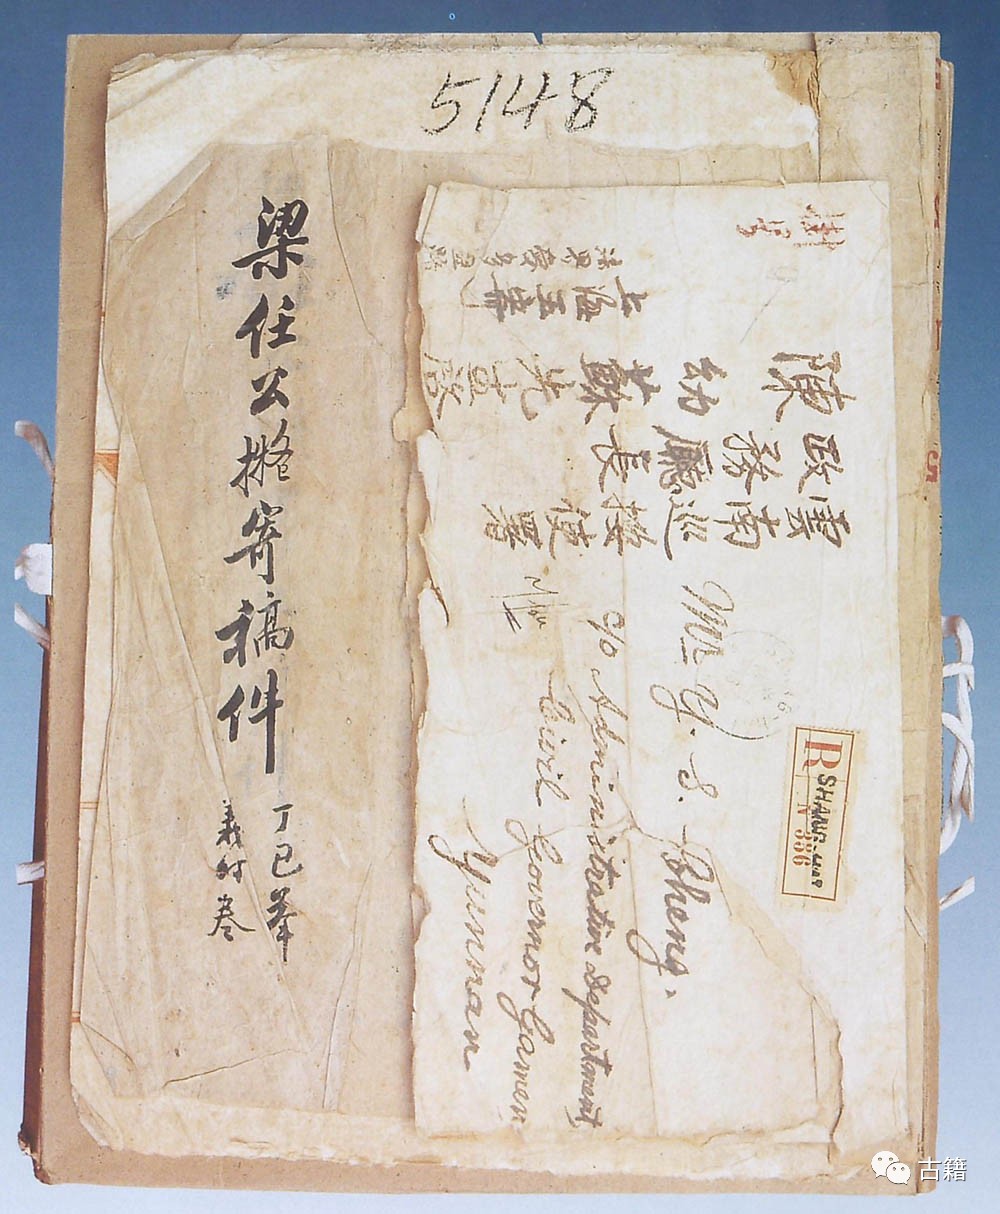 5148
梁任公擬寄稿件
丁巳举
義时
掛号
雲南巡按使署
政務廳長
陳幼蘇先生啓
上海王寄
Mr Y. S. Cheng,
c/o Administrative Department
Civil Governor Yamen
Yunnan
R
SHANG-HAI
N 336
古籍